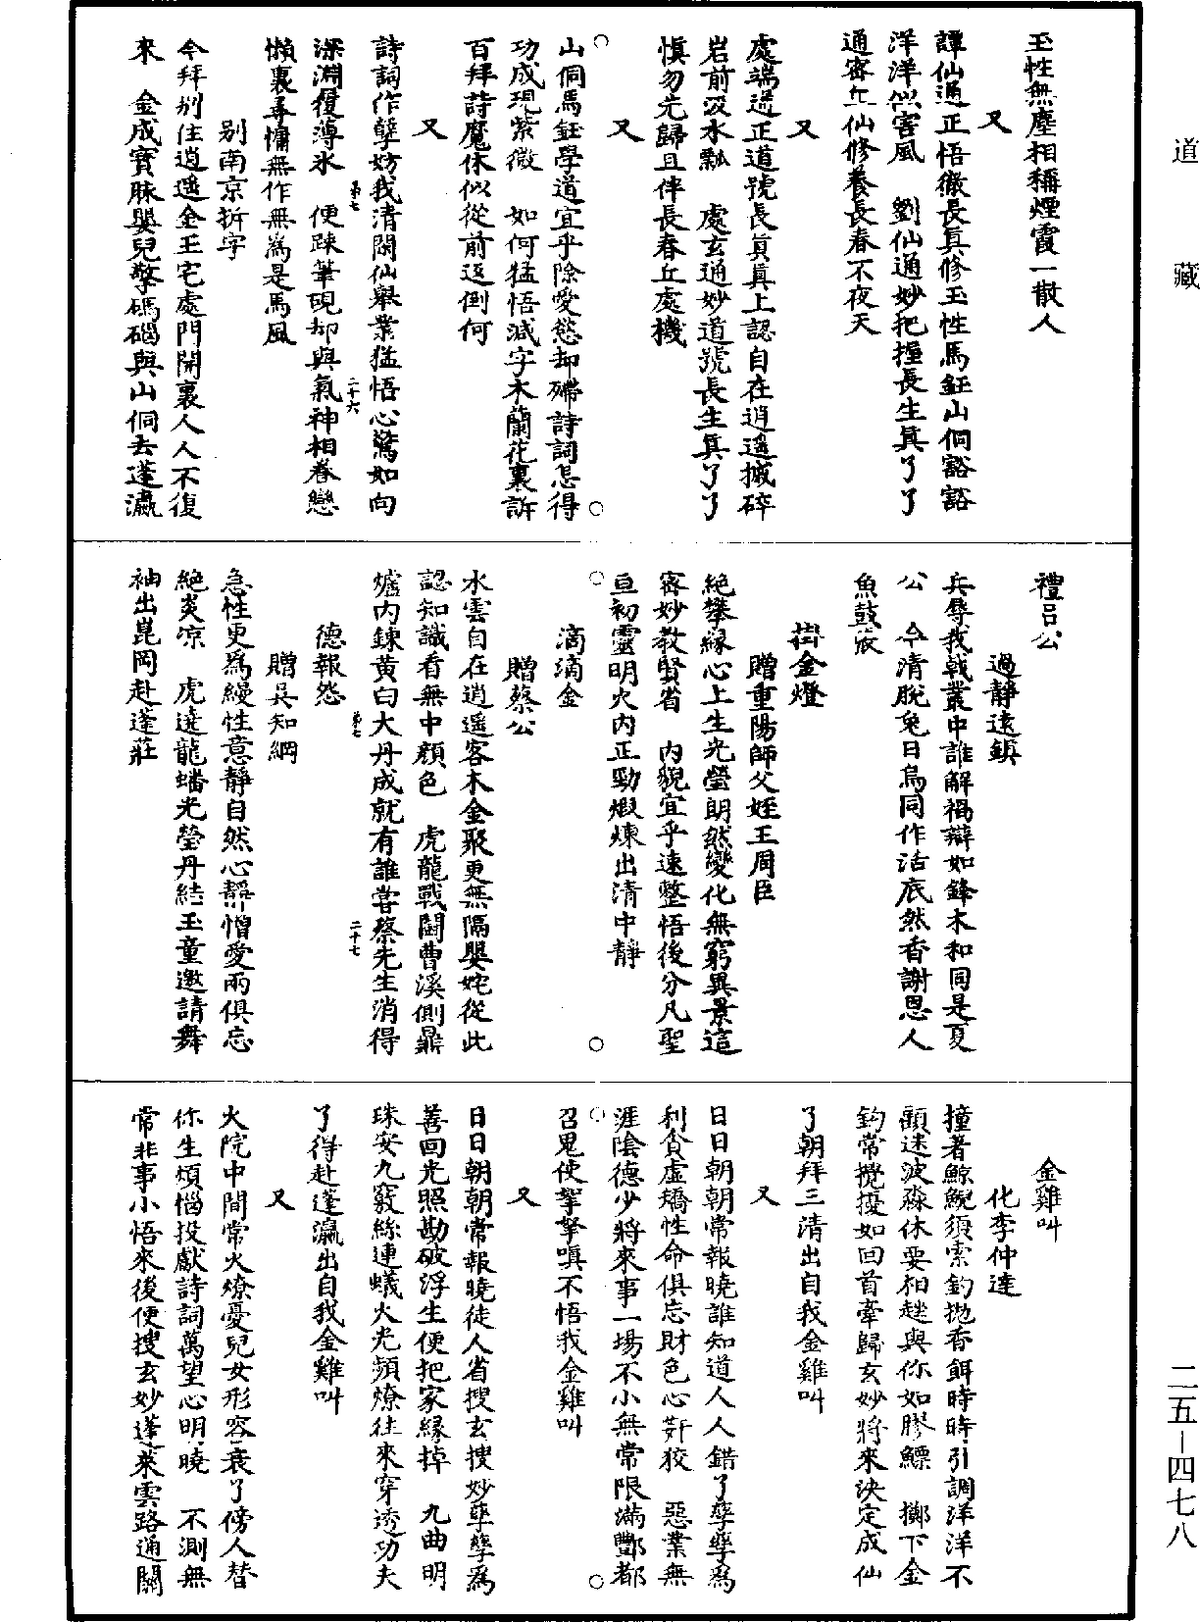 道藏
玉性無塵相稱煙霞一散人
又
譚仙通正悟徹長真修玉性馬鈺山侗豁豁
洋洋似害風　劉仙通妙把握長生真了了
通密丘仙修養長春不夜天
又
處端通正道號長真真上認自在逍遥摵碎
岩前汲水瓢　處玄通妙道號長生真了了
慎勿先歸且伴長春丘處機
又
山侗馬鈺學道宜乎除愛慾却殢詩詞怎得
功成現紫微　如何猛悟減字木蘭花裏訴
百拜詩魔休似從前返倒何
又
詩詞作孽妨我清閑仙舉業猛悟心驚如向
深淵履薄氷　便踈筆硯却與氣神相眷戀
懶裏尋慵無作無為是馬風
别南京折字
今拜别住逍遥金王宅處門開裏人人不復
來　金成寳脉嬰兒擎碼碯與山侗去蓬瀛
第七
二十六
禮吕公
過静遠鎮
兵辱我戟叢中誰解禍辯如鋒木和同是夏
公　令清脫兔日烏同作活底然香謝恩人
魚鼓敀
掛金燈
贈重陽師父姪王周臣
絶攀緣心上生光瑩朗然變化無窮異景這
密妙教賢省　内貌宜乎速整悟後分凡聖
亘初靈明火内正勁煆煉出清中靜
滴滴金
贈蔡公
水雲自在逍遥客木金聚更無隔嬰姹從此
認知識看無中顏色　虎龍戰鬪曹溪側鼎
爐内鍊黄白大丹成就有誰嘗蔡先生消得
德報怨
贈吴知綱
急性更為縵性意靜自然心靜憎愛兩俱忘
絶炎凉　虎遶龍蟠光瑩丹結玉童邀請舞
袖出崑岡赴蓬莊
第七
二十七
金雞叫
化李仲達
撞著鯨鯢須索釣抛香餌時時引調洋洋不
顧迷波淼休要相趂與你如膠鰾　擲下金
鈎常攪擾如回首牽歸玄妙將來決定成仙
了朝拜三清出自我金雞叫
又
日日朝朝常報曉誰知道人人錯了孽孽為
利貪虛矯性命俱忘財色心姧狡　惡業無
涯陰德少將來事一場不小無常限滿酆都
召鬼使拏拏嗔不悟我金雞叫
又
日日朝朝常報曉徒人省搜玄搜妙孳孳為
善回光照勘破浮生便把家緣掉　九曲明
珠安九竅絲連蟻火光頻燎往來穿透功夫
了得赴蓬瀛出自我金雞叫
又
火院中間常火燎憂兒女形容衰了傍人替
你生煩惱投獻詩詞萬望心明曉　不測無
常非事小悟來後便搜玄妙蓬萊雲路通關
二五－四七八